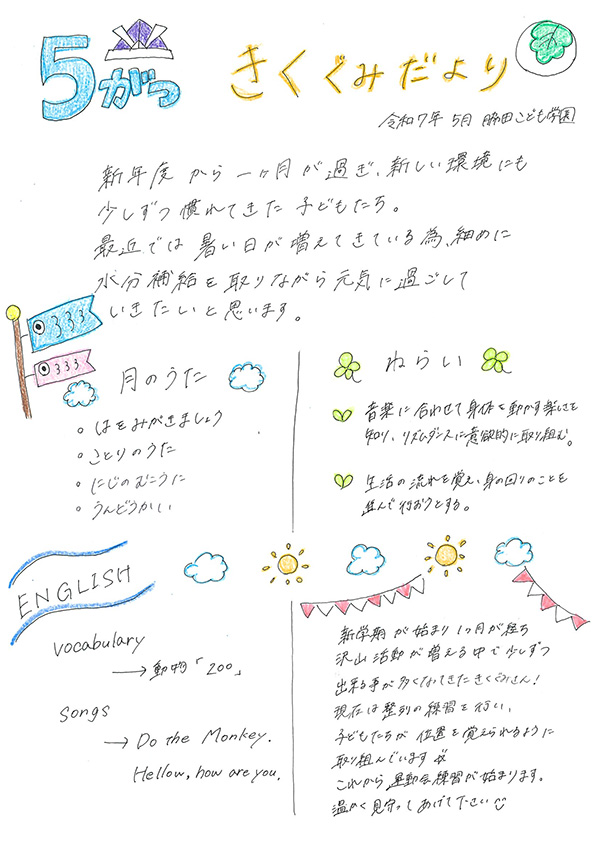 5がつ
きくぐみだより
令和7年 5月 脇田こども学園
新年度 から 一ヶ月 が 過ぎ、新しい 環境にも
少しずつ 慣れてきた 子どもたち。
最近では 暑い日が 増えてきている為、細めに
水分補給を取りながら元気に過ごして
いきたいと思います。
月のうた
。はをみがきましょう
。ことりのうた
。にじのむこうに
。うんどうかい
ねらい
音楽に合わせて身体を動かす楽しさを
知り、リズムダンスに意欲的に取り組む。
生活の流れを覚え、身の回りのことを
進んで行おうとする。
ENGLISH
vocabulary
→動物「200」
songs
→ Do the Monkey.
Hellow, how are you.
新学期が始まり1ヶ月が経ち
沢山活動が増える中で少しずつ
出来る事が多くなってきたきくぐみさん!
現在は整列の練習を行い、
子どもたちが位置を覚えられるように
取り組んでいます
これから運動会練習が始まります。
温かく見守ってあげて下さい